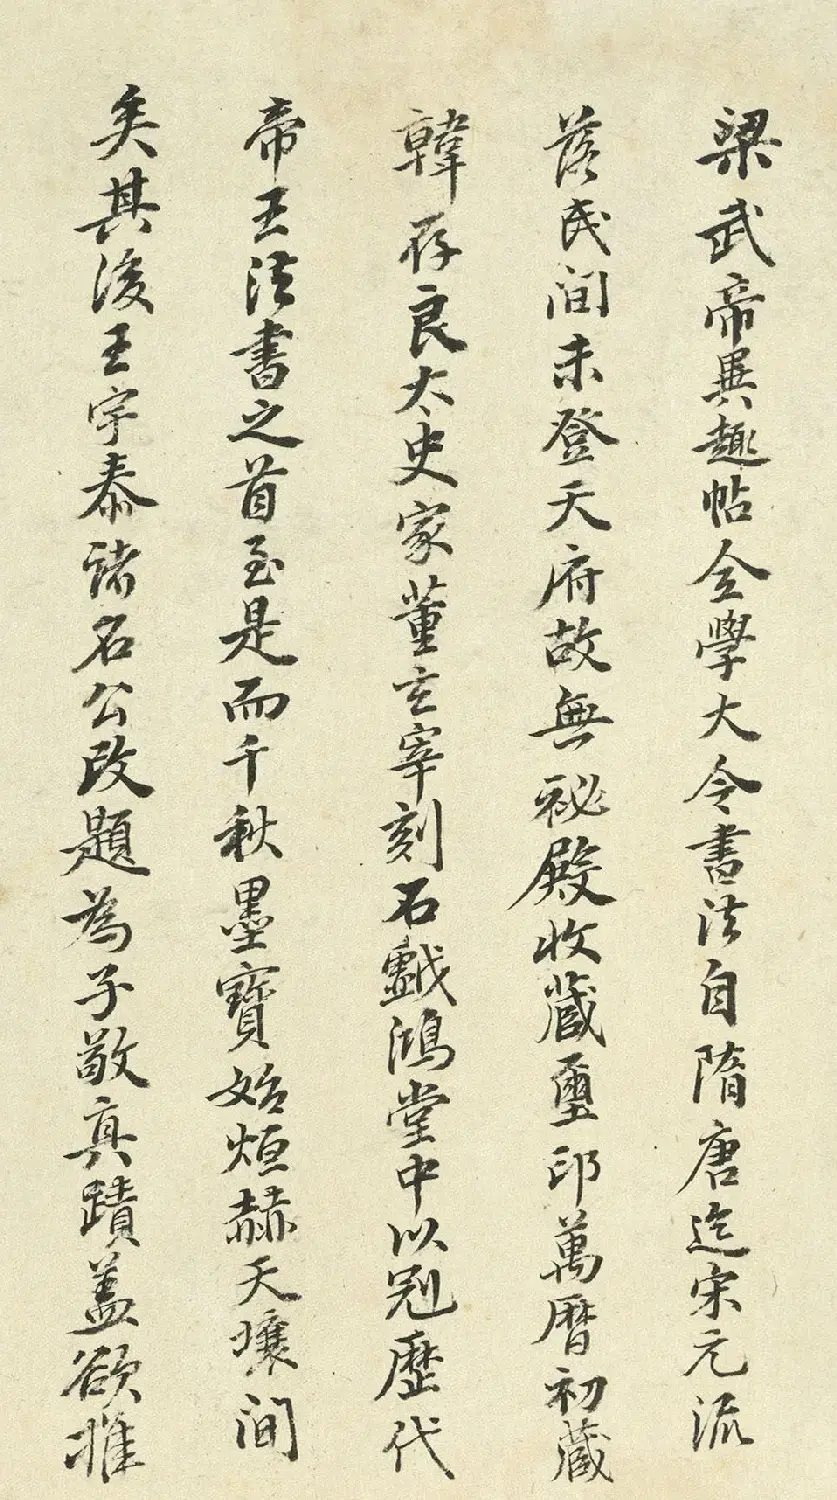 梁武帝異趣帖全學大令書法自隋唐迄宋元流
落民間未登天府故無祕殿收藏璽印萬曆初藏
韓存良太史家董玄宰刻石戯鴻堂中以冠歷代
帝王法書之首至是而千秋墨寶始烜赫天壤間
矣其後王宇泰諸名公改題為子敬真蹟蓋欲推